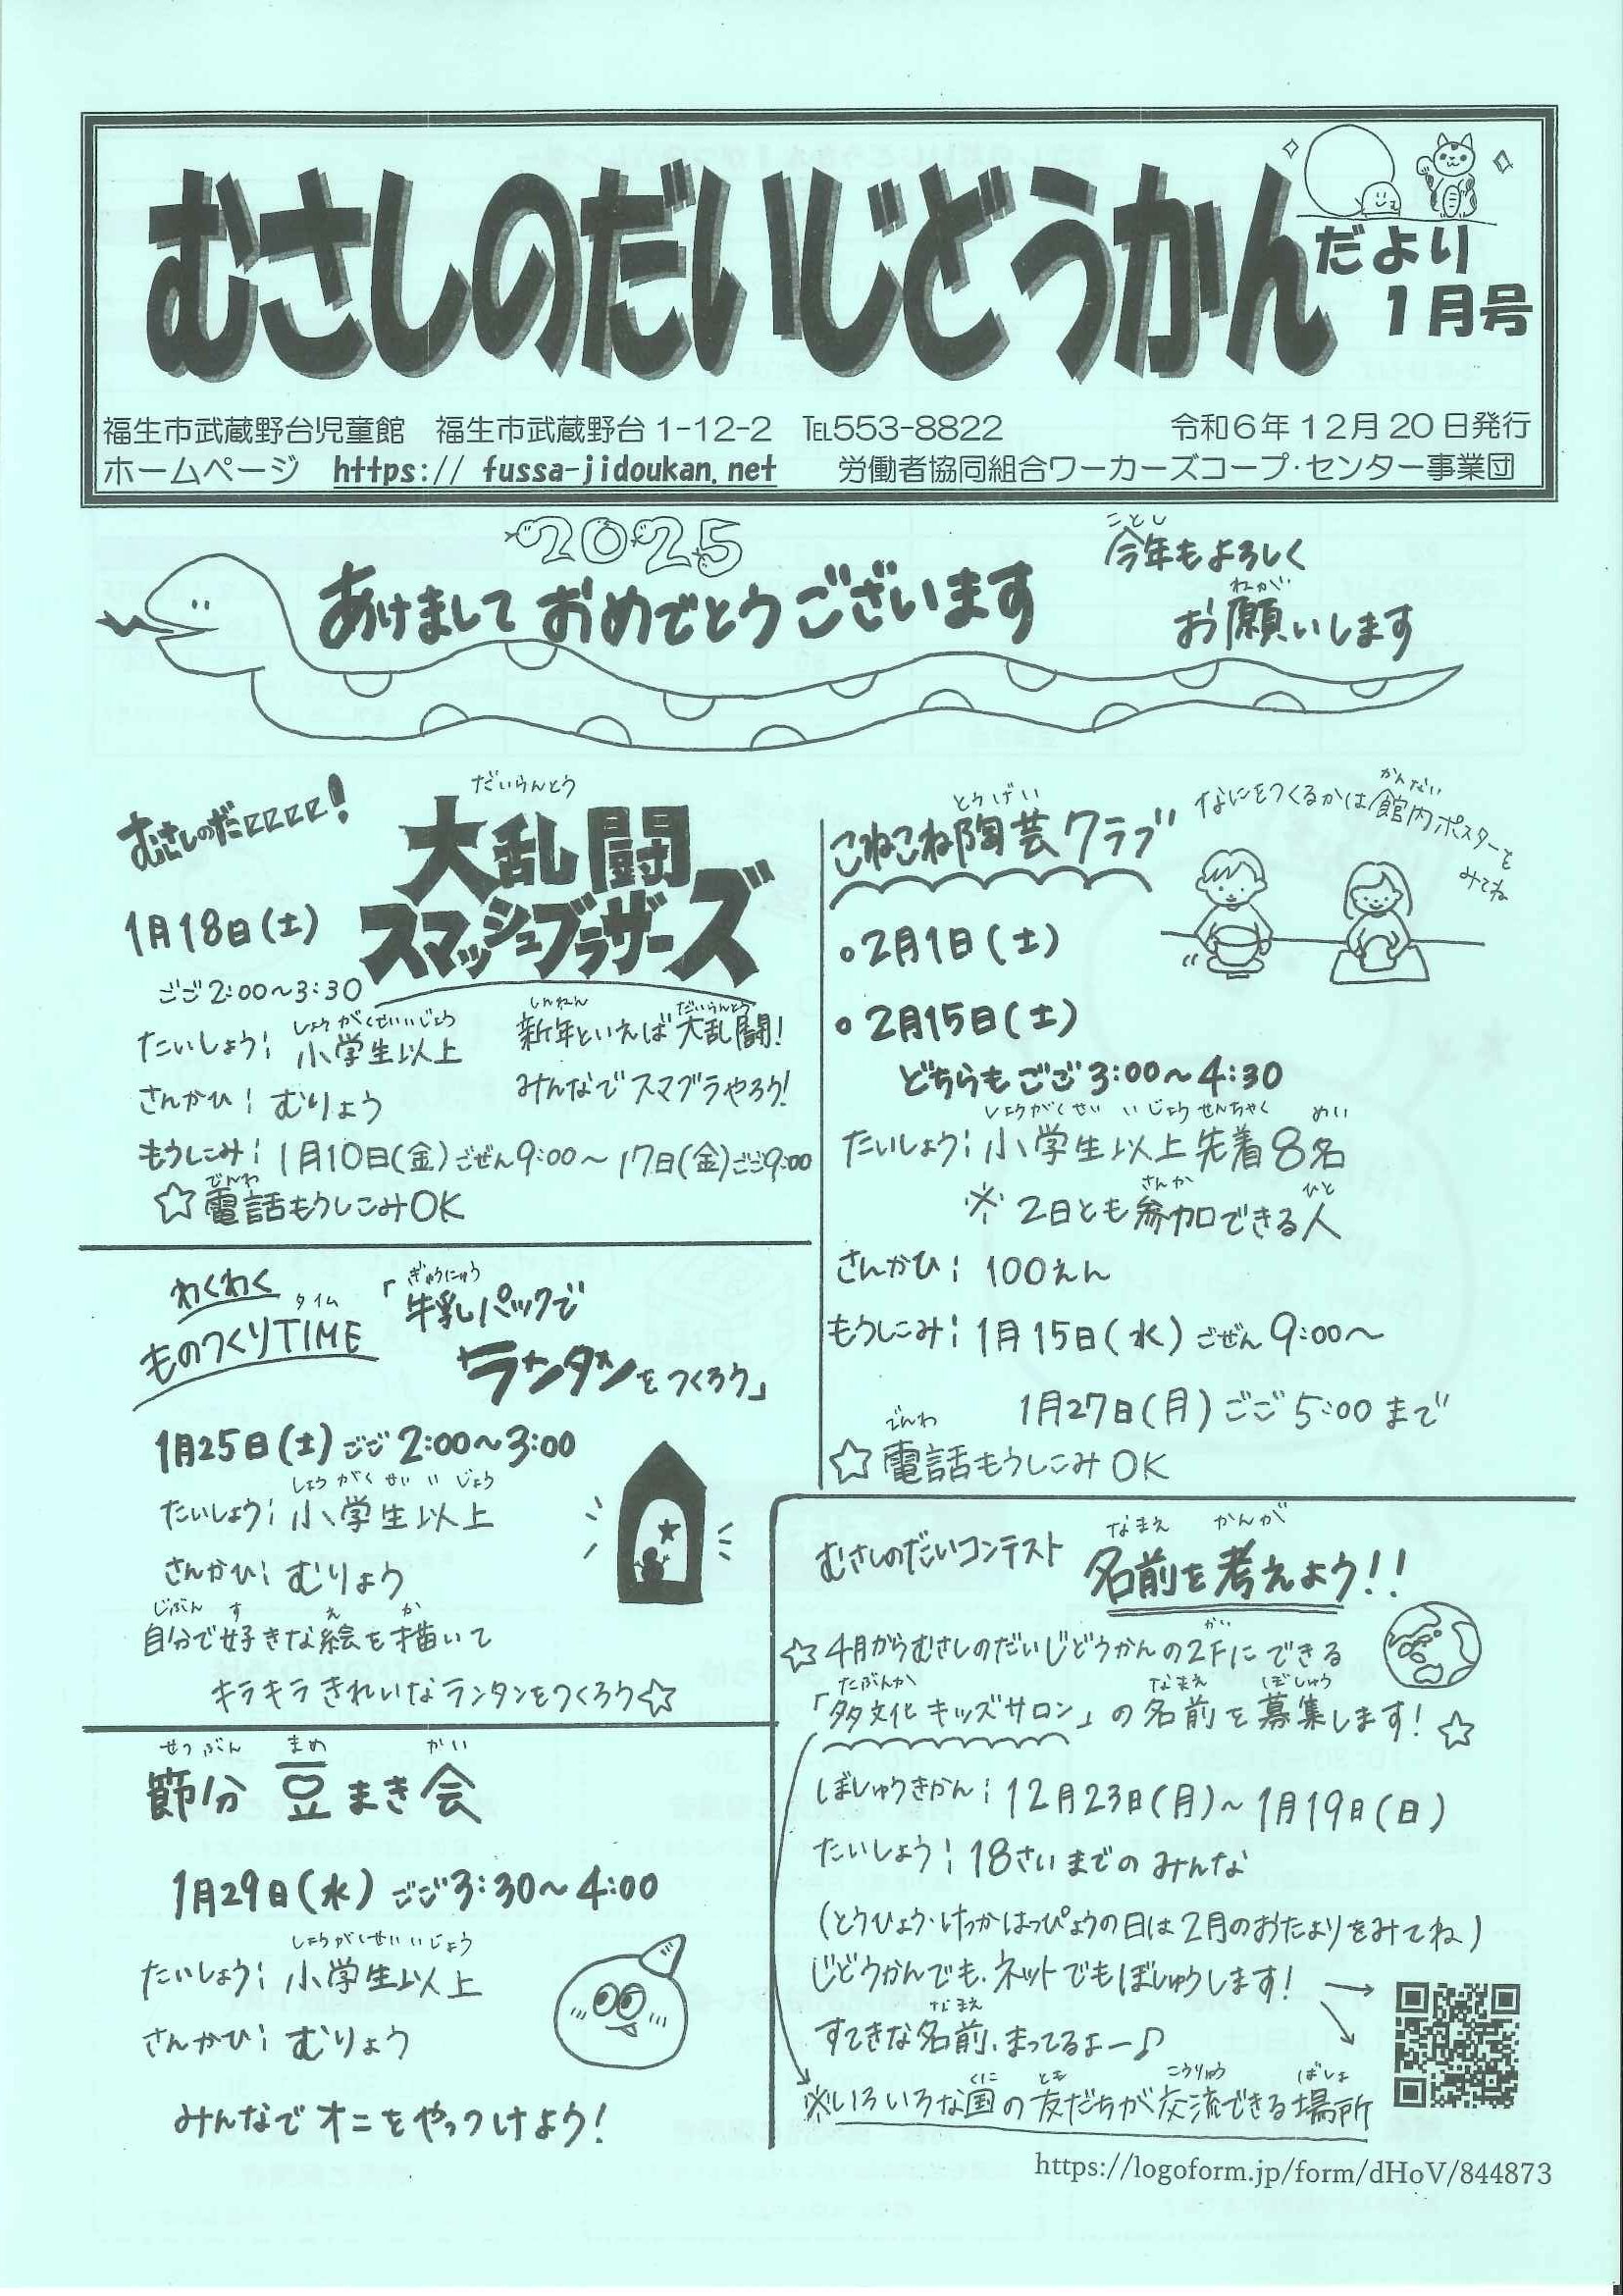 むさしのだいじどうかん
だより
1月号
福生市武蔵野台児童館　福生市武蔵野台1-12-2　℡553-8822　令和6年12月20日発行
ホームページ　https:// fussa-jidoukan.net　労働者協同組合ワーカーズコープ・センター事業団
2025
あけまして おめでとう ございます
ことし
今年もよろしく
ねが
お願いします
むさしのだ!
だいらんとう
大乱闘
スマッシュブラザーズ
1月18日(土)
ごご2:00〜3:30
しょうがくせいいじょう
たいしょう: 小学生以上
さんかひ: むりょう
しんねん だいらんとう
新年といえば大乱闘!
みんなでスマブラやろう!
もうしこみ: 1月10日(金)ごぜん9:00〜17日(金)ごご9:00
でんわ
☆電話もうしこみOK
わくわく
タイム
ものつくりTIME
ぎゅうにゅう
「牛乳パックで
ランタンをつくろう」
1月25日(土)ごご2:00〜3:00
しょうがくせいいじょう
たいしょう: 小学生以上
さんかひ: むりょう
じぶん す え か
自分で好きな絵を描いて
キラキラきれいなランタンをつくろう☆
せつぶん まめ かい
節分 豆まき会
1月29日(水)ごご3:30〜4:00
しょうがくせいいじょう
たいしょう: 小学生以上
さんかひ: むりょう
みんなでオニをやっつけよう!
とうげい
こねこね陶芸クラブ
かんない
なにをつくるかは館内ポスターを
みてね
○2月1日(土)
○2月15日(土)
どちらもごご3:00〜4:30
しょうがくせい いじょう せんちゃく めい
たいしょう: 小学生以上先着8名
さんか ひと
※2日とも参加できる人
さんかひ: 100えん
もうしこみ: 1月15日(水)ごぜん9:00〜
1月27日(月)ごご5:00まで
でんわ
☆電話もうしこみOK
むさしのだいコンテスト
なまえ かんが
名前を考えよう!!
かい
☆4月からむさしのだいじどうかんの2Fにできる
たぶんか なまえ ぼしゅう
「多文化キッズサロン」の名前を募集します!☆
ぼしゅうきかん: 12月23日(月)〜1月19日(日)
たいしょう: 18さいまでのみんな
(とうひょう・けっかはっぴょうの日は2月のおたよりをみてね)
じどうかんでも、ネットでもぼしゅうします!
なまえ
すてきな名前、まってるよー♪
くに とも こうりゅう ばしょ
※いろいろな国の友だちが交流できる場所
https://logoform.jp/form/dHoV/844873